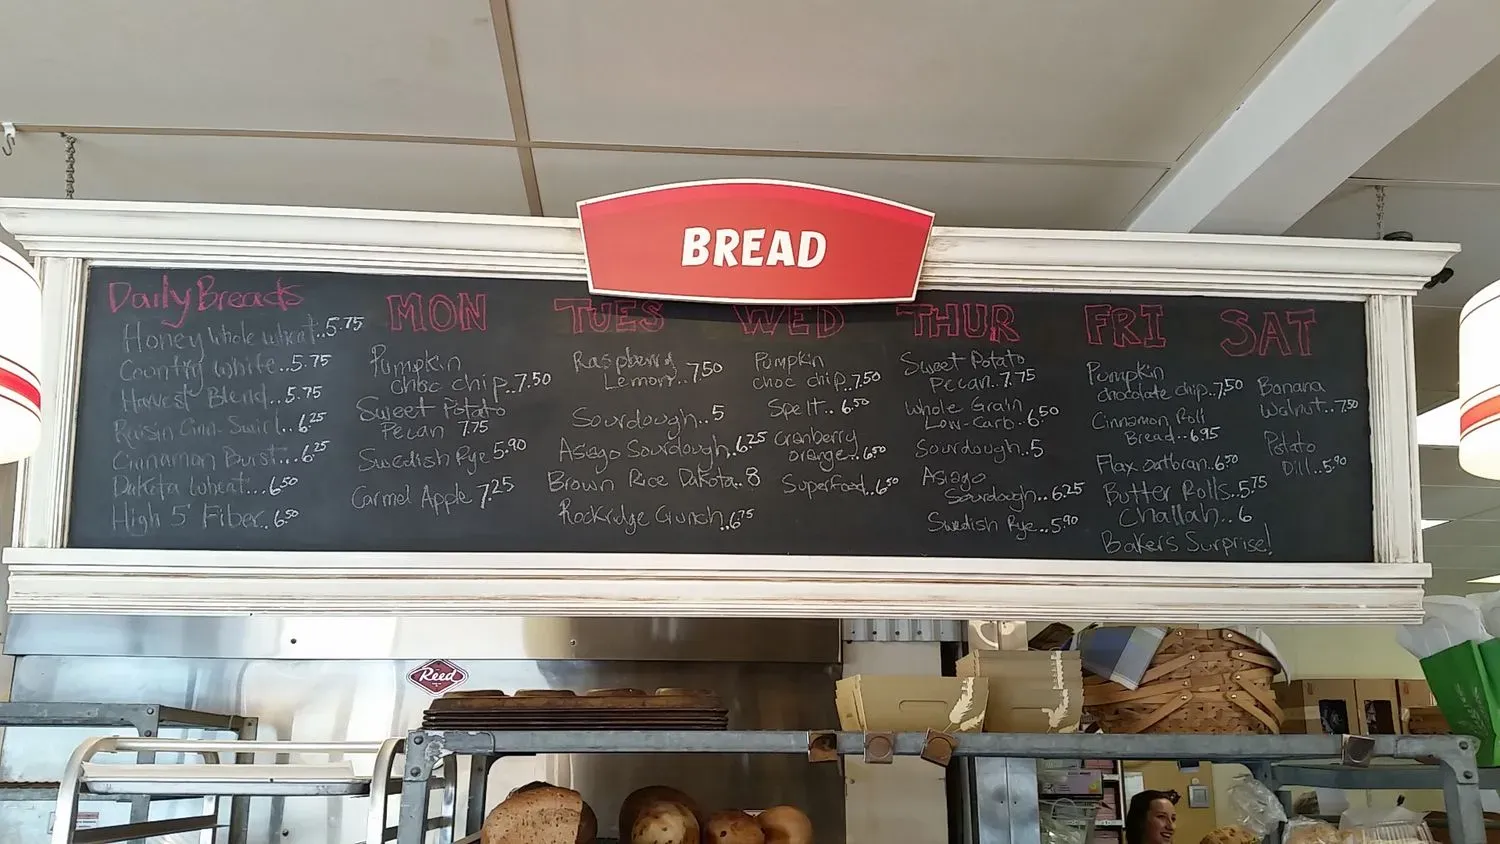 BREAD
Daily Breads
Honey whole wheat..5.75
Country white..5.75
Harvest Blend..5.75
Raisin Cinn. Swirl..6.25
Cinnamon Burst...6.25
Dakota Wheat...6.50
High 5 Fiber..6.50
MON
Pumpkin
choc chip..7.50
Sweet Potato
Pecan 7.75
Swedish Rye 5.90
Carmel Apple 7.25
TUES
Raspberry
Lemon..7.50
Sourdough..5
Asiago Sourdough..6.25
Brown Rice Dakota..8
Rockridge Crunch..6.75
WED
Pumpkin
choc chip..7.50
Spelt..6.50
Cranberry
orange..6.50
Superfood..6.50
THUR
Sweet Potato
Pecan..7.75
Whole Grain
Low-Carb..6.50
Sourdough..5
Asiago
Sourdough..6.25
Swedish Rye..5.90
FRI
Pumpkin
chocolate chip..7.50
Cinnamon Roll
Bread..6.95
Flax oatbran..6.50
Butter Rolls..5.75
Challah..6
Bakers Surprise!
SAT
Banana
Walnut..7.50
Potato
Dill..5.90
Reed